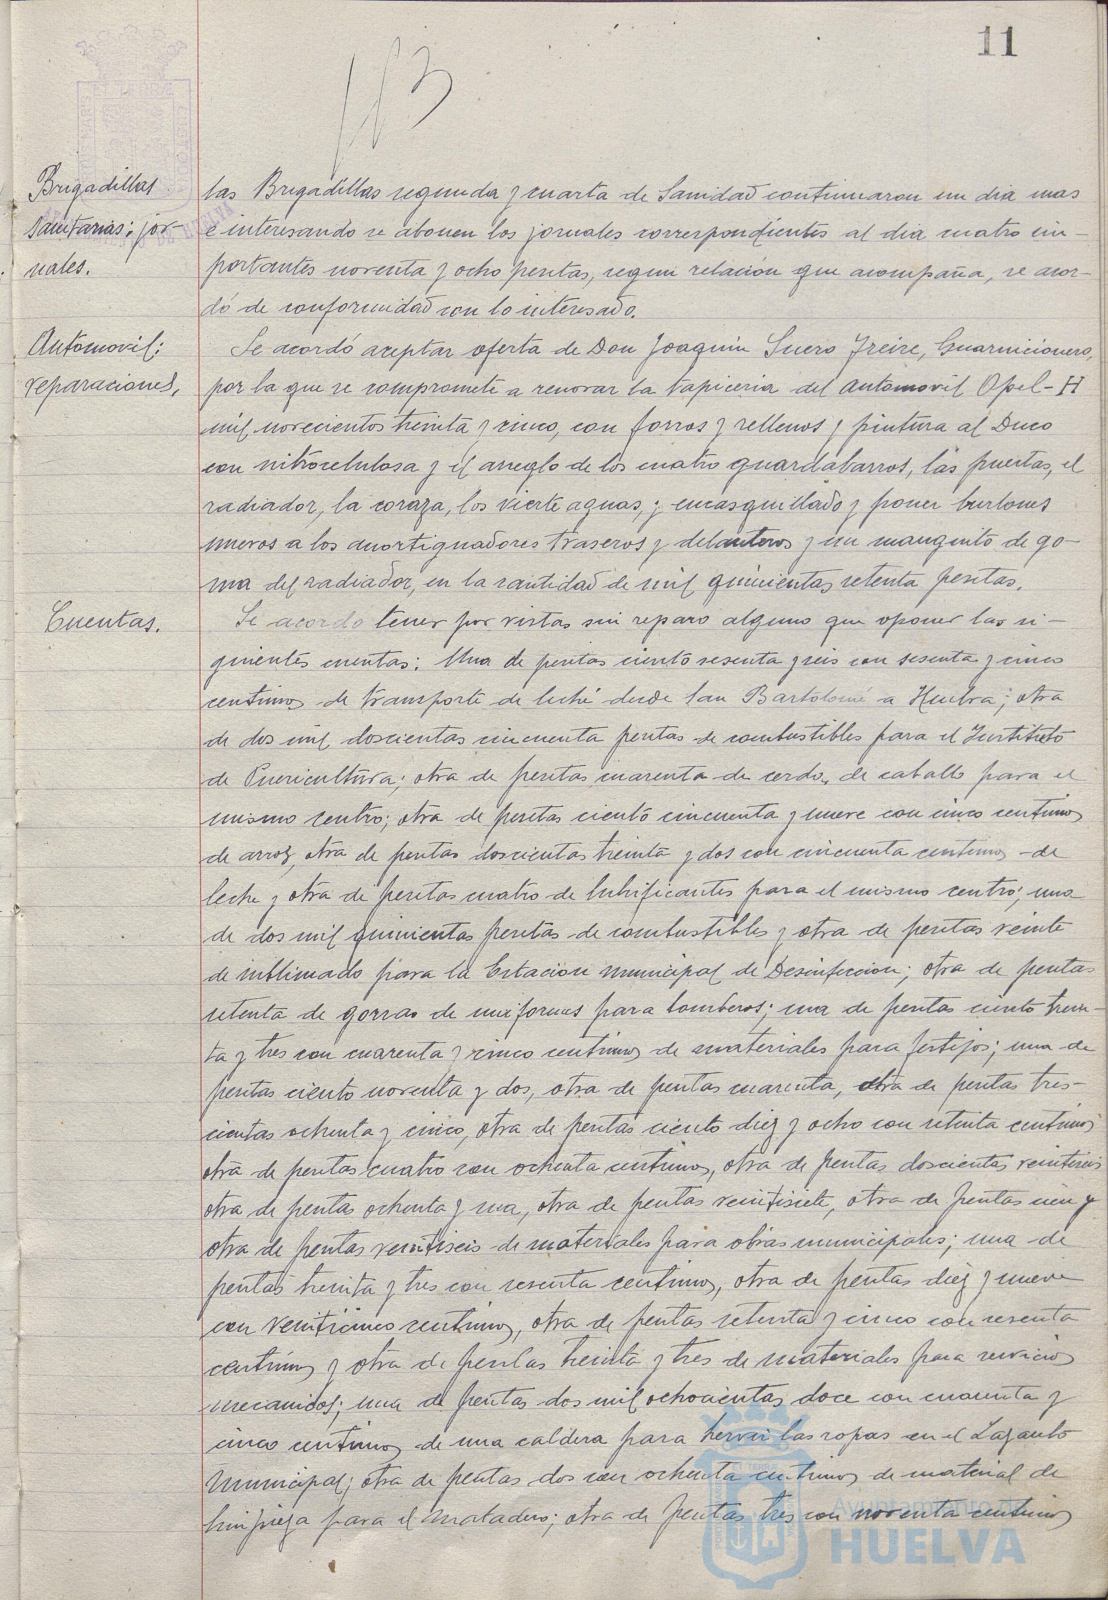 11
113
Brigadillas
sanitarias: jor-
nales.
las Brigadillas segunda y cuarta de Sanidad continuaron un dia mas
e interesando se abonen los jornales correspondientes al dia cuatro im-
portantes noventa y ocho pesetas, segun relación que acompaña, se acor-
dó de conformidad con lo interesado.
Automovil:
reparaciones,
Se acordó aceptar oferta de Don Joaquin Suero Freire, Guarnicionero,
por la que se compromete a renovar la tapiceria del automovil Opel-H
mil novecientos treinta y cinco, con forros y rellenos y pintura al Duco
con nitrocelulosa y el arreglo de los cuatro guardabarros, las puertas, el
radiador, la coraza, los vierte aguas, y encasquillado y poner bulones
nuevos a los amortiguadores traseros y delanteros y un manguito de go-
ma del radiador, en la cantidad de mil quinientas setenta pesetas.
Cuentas.
Se acordo tener por vistas sin reparo alguno que oponer las si-
guientes cuentas: Una de pesetas ciento sesenta y seis con sesenta y cinco
centimos de transporte de leche desde San Bartolomé a Huelva; otra
de dos mil doscientas cincuenta pesetas de combustibles para el Instituto
de Puericultura; otra de pesetas cuarenta de cerdo, de caballo para el
mismo centro; otra de pesetas ciento cincuenta y nueve con cinco centimos
de arroz, otra de pesetas doscientas treinta y dos con cincuenta centimos de
leche y otra de pesetas cuatro de lubrificantes para el mismo centro; una
de dos mil quinientas pesetas de combustibles y otra de pesetas veinte
de sublimado para la Estacion Municipal de Desinfeccion; otra de pesetas
setenta de gorras de uniformes para bomberos; una de pesetas ciento trein-
ta y tres con cuarenta y cinco centimos de materiales para festejos; una de
pesetas ciento noventa y dos, otra de pesetas cuarenta, otra de pesetas tres-
cientas ochenta y cinco, otra de pesetas ciento diez y ocho con setenta centimos
otra de pesetas cuatro con ochenta centimos, otra de pesetas doscientas veintiseis
otra de pesetas ochenta y una, otra de pesetas veintisiete, otra de pesetas cien y
otra de pesetas veintiseis de materiales para obras municipales; una de
pesetas treinta y tres con sesenta centimos, otra de pesetas diez y nueve
con veinticinco centimos, otra de pesetas setenta y cinco con sesenta
centimos y otra de pesetas treinta y tres de materiales para servicios
mecanicos; una de pesetas dos mil ochocientas doce con cuarenta y
cinco centimos de una caldera para hervir las ropas en el Lazareto
Municipal; otra de pesetas dos con ochenta centimos de material de
limpieza para el Matadero; otra de pesetas tres con noventa centimos
Ayuntamiento de
HUELVA